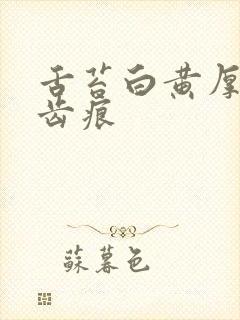 舌苔白黄厚
齿痕
蘇暮色